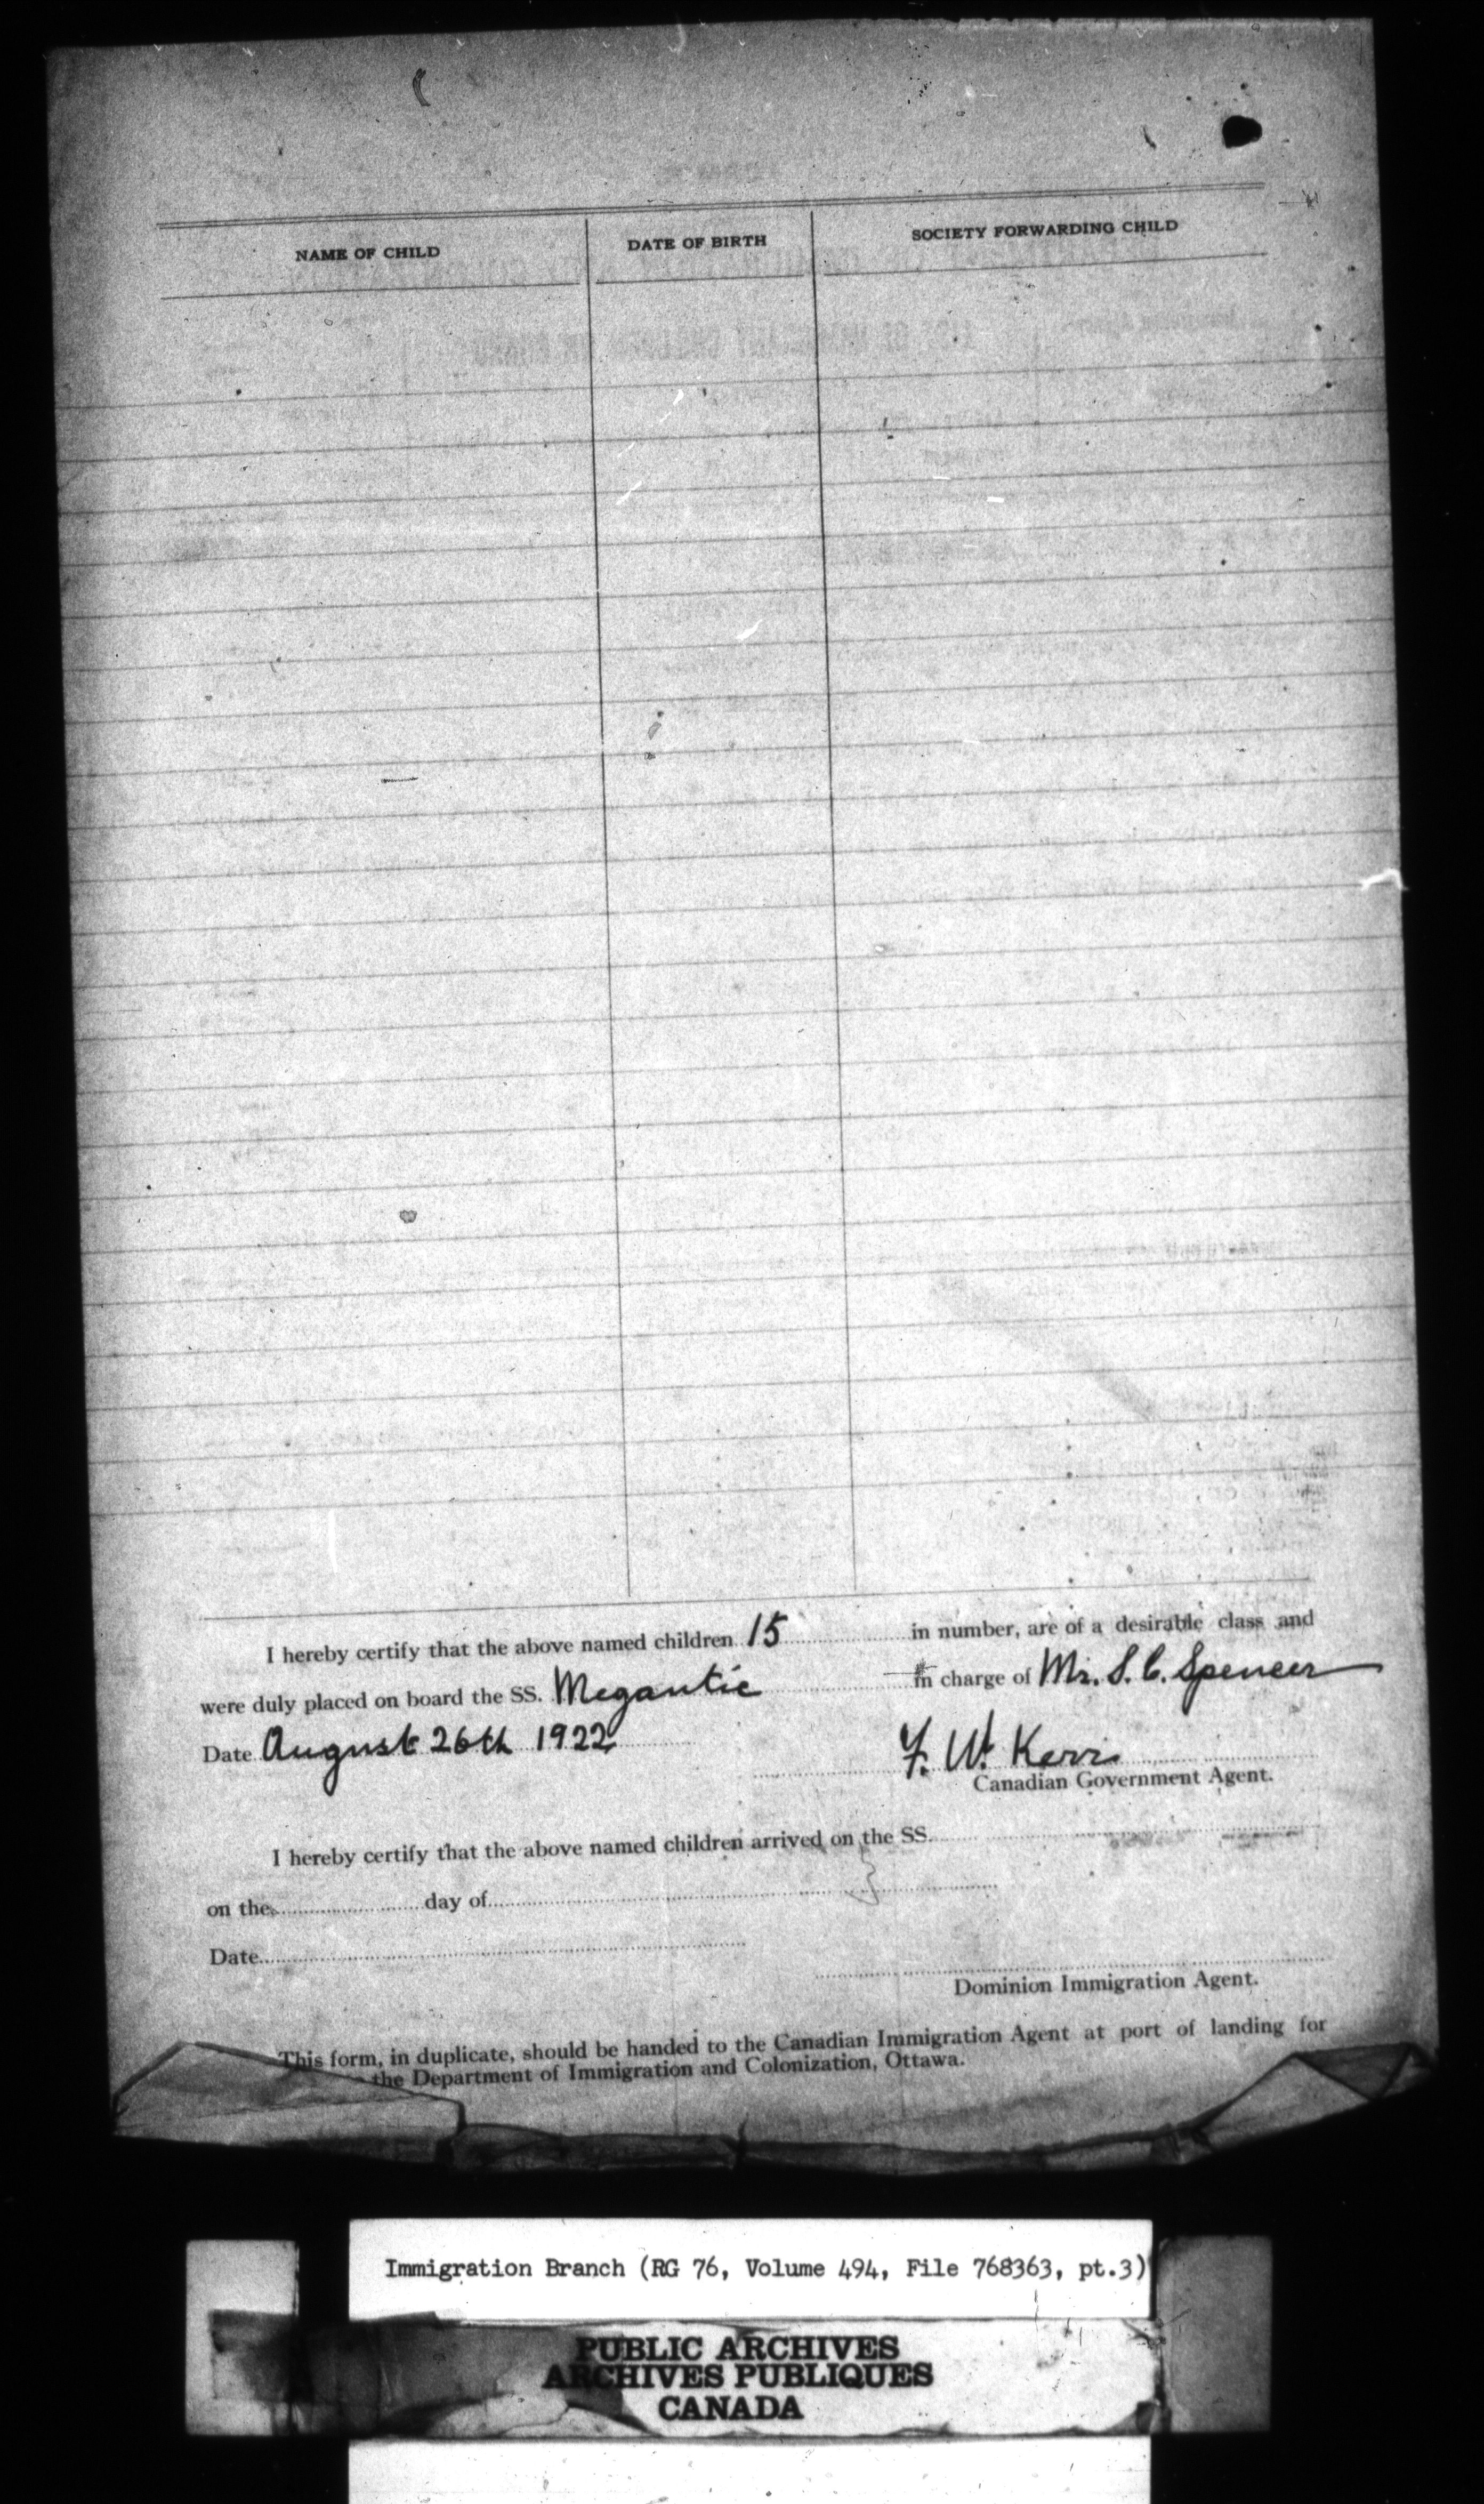 NAME OF CHILD DATE OF BIRTH SOCIETY FORWARDING CHILD
I hereby certify that the above named children 15 in number, are of a desirable class and
were duly placed on board the SS. Megantic in charge of Mr. S. C. Spencer
Date August 26th 1922 F. W. Kerr
Canadian Government Agent.
I hereby certify that the above named children arrived on the SS.
on the day of
Date
Dominion Immigration Agent.
This form, in duplicate, should be handed to the Canadian Immigration Agent at port of landing for
the Department of Immigration and Colonization, Ottawa.
Immigration Branch (RG 76, Volume 494, File 768363, pt.3)
PUBLIC ARCHIVES
ARCHIVES PUBLIQUES
CANADA